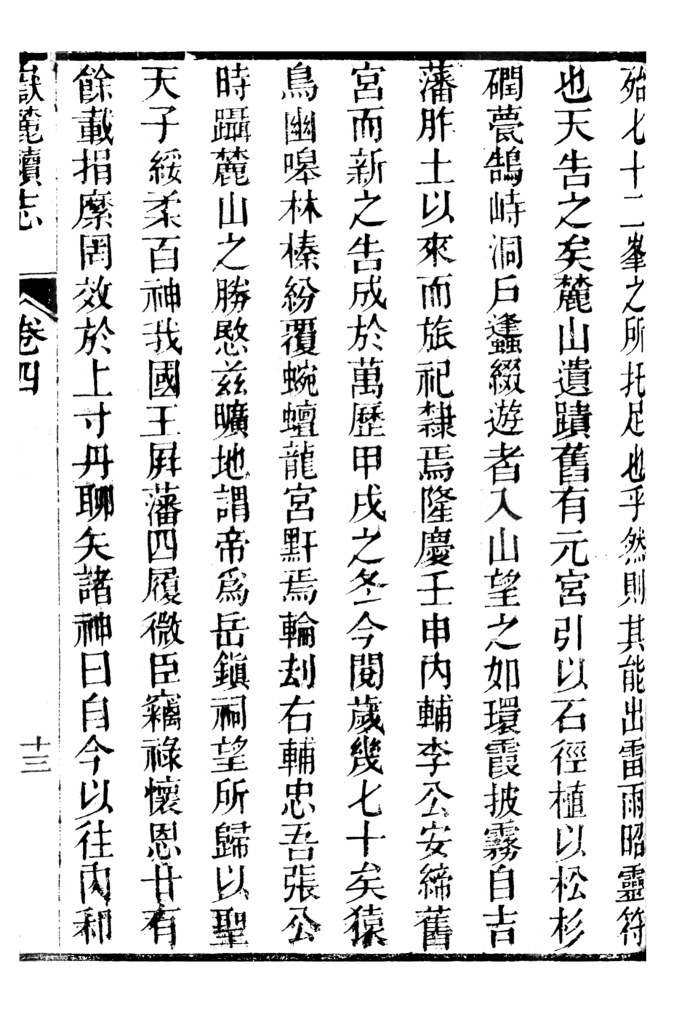 殆七十二峯之所托足也乎然則其能出雷雨昭靈符
也天告之矣麓山遺蹟舊有元宮引以石徑植以松杉
磵甍鵠峙洞戶蠭綴遊者入山望之如環霞披霧自吉
藩胙土以來而旅祀隸焉隆慶壬申内輔李公安締舊
宮而新之告成於萬歷甲戌之冬今閱歲幾七十矣猿
鳥幽嘷林榛紛覆蜿蟺龍宮黚焉輪刦右輔忠吾張公
時躡麓山之勝愍兹曠地謂帝爲岳鎭祠望所歸以聖
天子綏柔百神我國王屛藩四履微臣竊祿懷恩廿有
餘載捐縻罔效於上寸丹聊矢諸神曰自今以往内和
嶽麓續志
卷四
十三